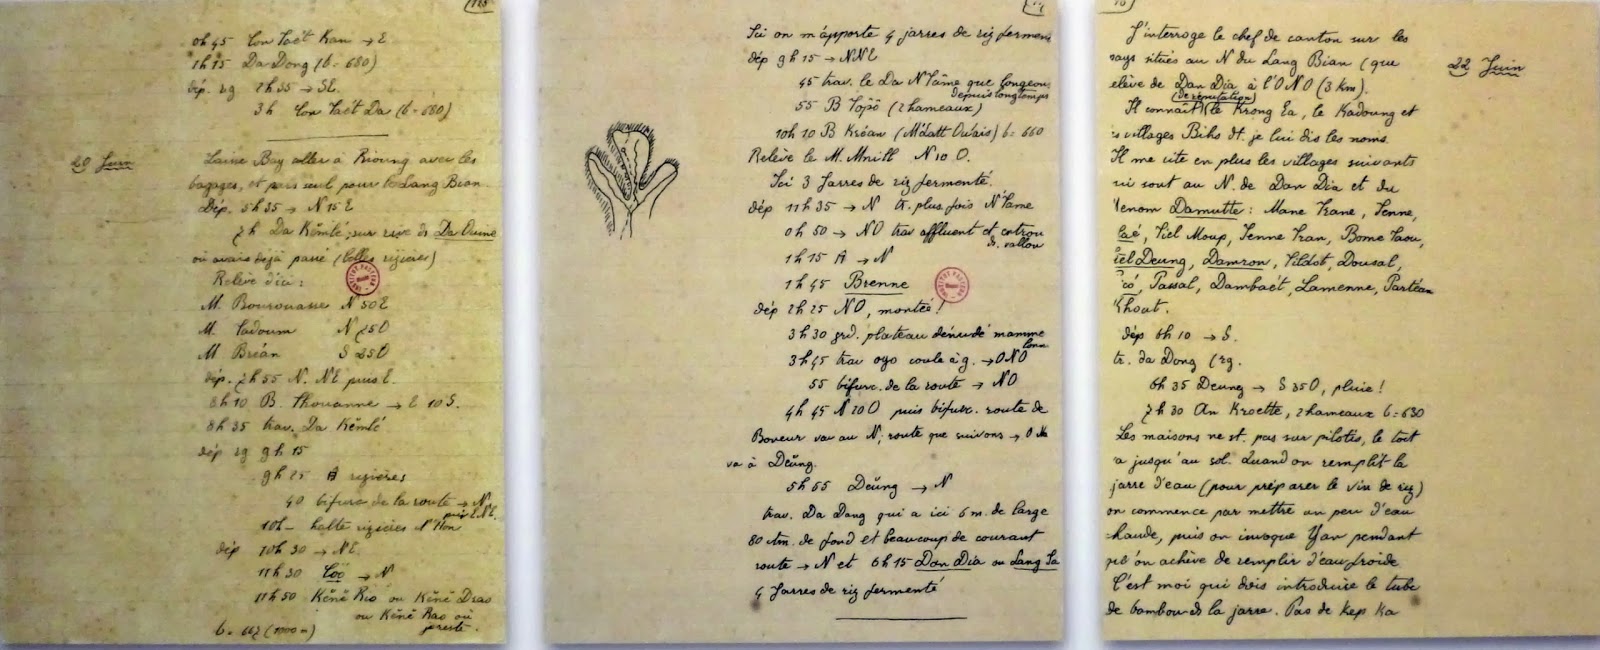 0h45 Con Taët Kan → E
1h15 Da Dong (b = 680)
dép. rg 2h35 → SE.
3h Con Taët Da (b = 680)
20 Juin
Laisse Bay aller à Rioung avec les
bagages, et pars seul pour le Lang Bian.
Dép. 5h35 → N15E
7h Da Kêmlé, sur rive de Da Oume
où avais déjà passé (belles rizières)
Relevé d'ici :
M. Bourouasse N 50 E
M. Tadoum N 250
M. Brian S 250
dép. 7h55 N. NE puis E.
8h10 B. Thouanne → E 10 S.
8h35 trav. Da Kêmlé
dép rg 9h15
9h25 A rizières
40 bifurc de la route → N,
puis E.N.E.
10h — halte rizières N'Hon
dép 10h30 → NE.
11h30 Còò → N
11h50 Kěně Rio ou Kěně Drao
ou Kěně Rao où
je reste.
b = 667 (1000 m)
Ici on m'apporte 4 jarres de riz fermenté
dép 9h15 → NNE
45 trav. le Da N'Tâme que longeons
depuis longtemps
55 B Topô (2 hameaux)
10h10 B Kréan (M'datt Oulais) b = 660
Relève le M. Mnill N 10 O.
Ici 3 Jarres de riz fermenté.
dép 11h35 → N tr. plus. fois N'Tame
0h50 → NO trav affluent et entrons
ds. vallon
1h15 A → N
1h45 Brenne
dép 2h25 NO, montée !
3h30 grd. plateau dénudé mamme
lonn
3h45 trav oyo coule à g. → ONO
55 bifurc. de la route → NO
4h45 N 20 O puis bifurc. route de
Boneur va au N, route que suivons → O
va à Deŭng.
5h55 Deŭng → N
trav. Da Dong qui a ici 6 m. de large
80 ctm. de fond et beaucoup de courant
route → N et 6h15 Dan Dia ou Lang Sa
4 Jarres de riz fermenté
22 Juin
J'interroge le chef de canton sur les
pays situés au N du Lang Bian (que
relève de Dan Dia à l'ONO (3 km).
(de réputation)
Il connaît le Krong Ea, le Kadoung et
villages Bihs dt. je lui dis les noms.
Il me cite en plus les villages suivants
qui sont au N. de Dan Dia et du
Damutte : Mane Trane, Tenne,
Tiel Moup, Tenne Tran, Bome Taou,
Tiel Deung, Damron, Tildot, Dousal,
Passal, Dambaët, Lamenne, Partéan
Khoat.
dép 6h10 → S.
tr. da Dong (rg.
6h35 Deung → S 35 O, pluie !
7h30 An Kroette, 2 hameaux b = 630
Les maisons ne st. pas sur pilotis, le toit
va jusqu'au sol. Quand on remplit la
jarre d'eau (pour préparer le vin de riz)
on commence par mettre un peu d'eau
chaude, puis on invoque Yan pendant
qu'on achève de remplir d'eau froide
C'est moi qui dois introduire le tube
de bambou ds la jarre. Pas de kep ka